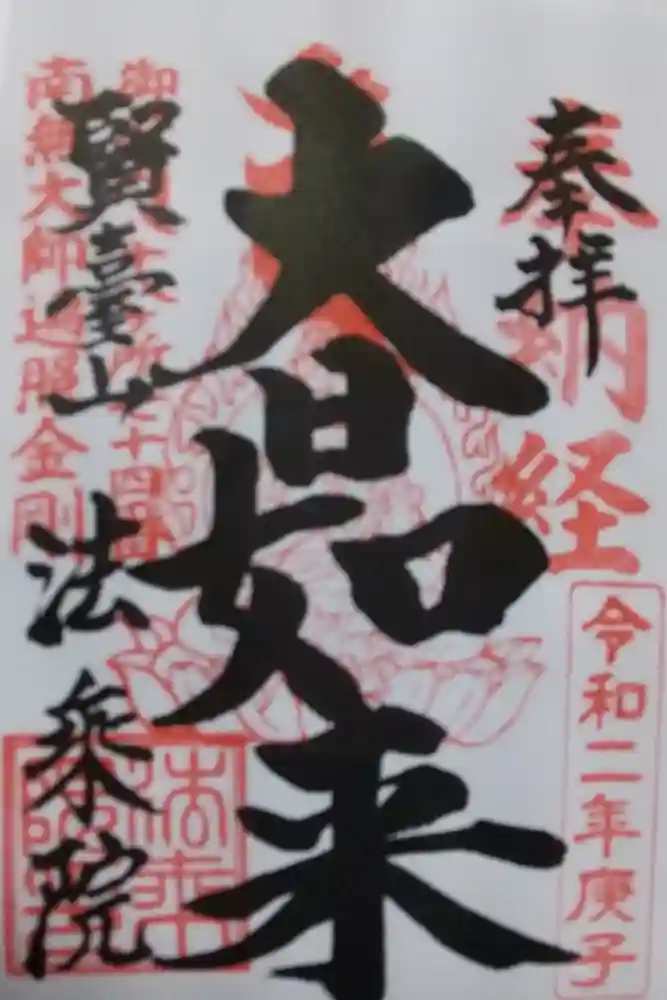 奉拝
納経
令和二年庚子
大日如来
賢臺山
法乗院
南無大師遍照金剛